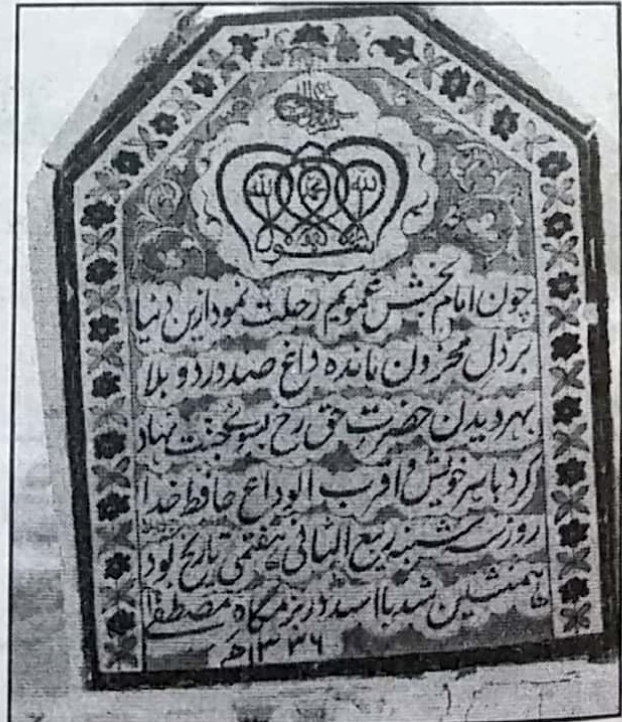 الله محمد الله
چون امام بخش عمویم رحلت نمود ازین دنیا
بر دل محزون مانده داغ صد درد و بلا
بهر دیدن حضرت حق رخ بسوئے جنت نهاد
کرد با هر خویش و اقرب الوداع حافظ خدا
روز یکشنبه ربیع الثانی هفتمی تاریخ بود
همنشین شد با اسد در بزمگاه مصطفےٰ
۱۳۳۶ھ